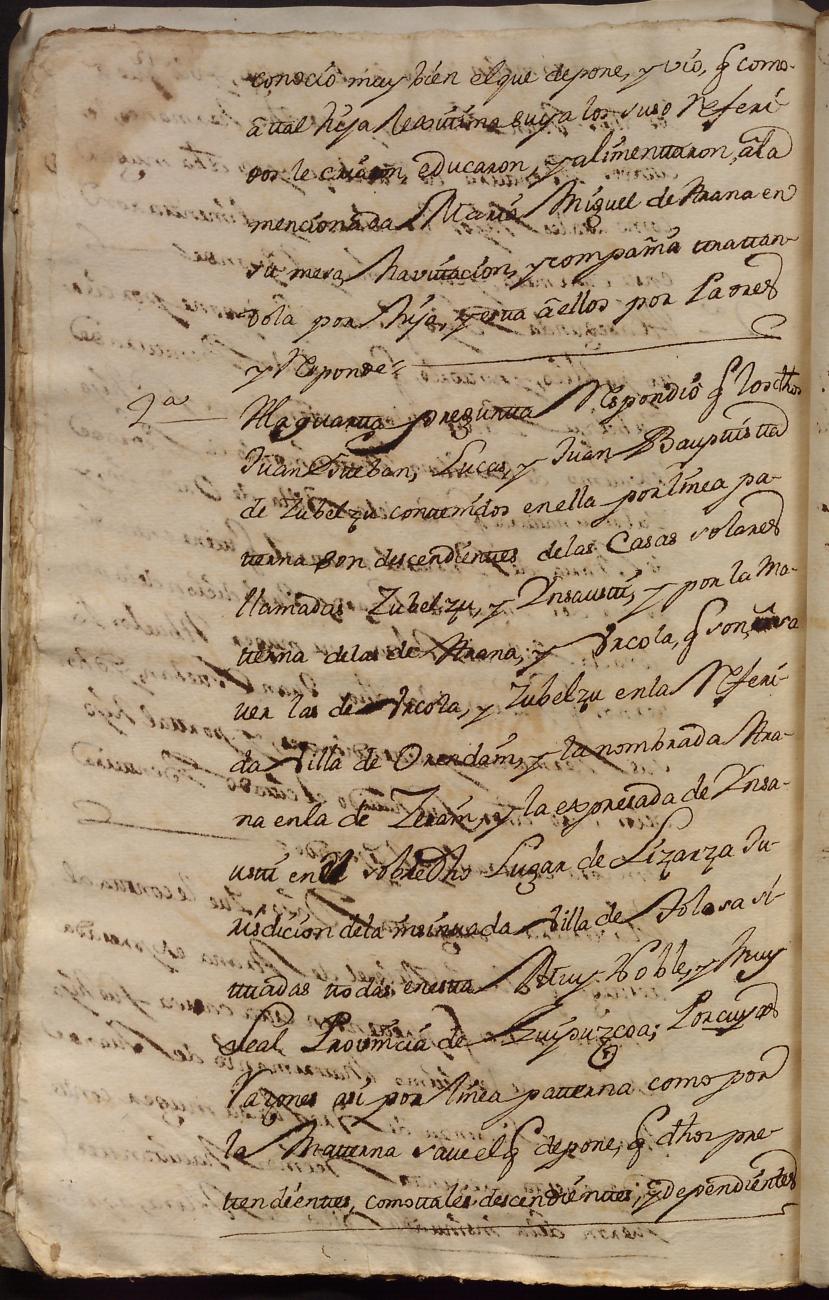 conocio muy bien el que depone, y vio, q̃ como
a tal hija lexitima suya los suso referi
dos le criaron, educaron, y alimentaron, a la
mencionada Maria Miguel de Arana en
su mesa, havitacion, y compañia tratan
dola por hija, y esta a ellos por Padres
y responde=
2ª A la quarta pregunta respondio q̃ los dhos
Juan Esteban, Lucas, y Juan Bauptista
de Zubelzu contenidos en ella por linea pa-
terna son descendientes de las Casas solares
llamadas Zubelzu, y Ynsausti, y por la Ma-
terna de las de Arana, y Vrcola, q̃ son, a sa
ver las de Vrcola, y Zubelzu en la referi-
da Villa de Orendain, y la nombrada Ara-
na en la de Zerain, y la expresada de Ynsa-
usti en el sobredho Lugar de Lizarza Ju-
risdicion de la insinuada Villa de Tolosa si-
tuadas todas en esta Muy Noble, y Muy
Leal Provincia de Guipuzcoa; Por cuyas
razones asi por linea paterna como por
la Materna save el q̃ depone, q̃ dhos pre-
tendientes, como tales descendientes, y dependientes